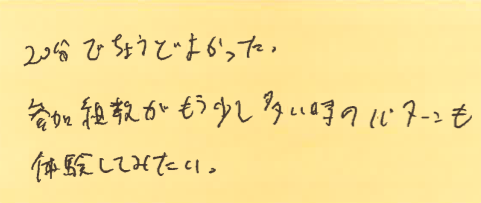 20分でちょうどよかった。
参加組数がもう少し多い時のパターンも
体験してみたい。